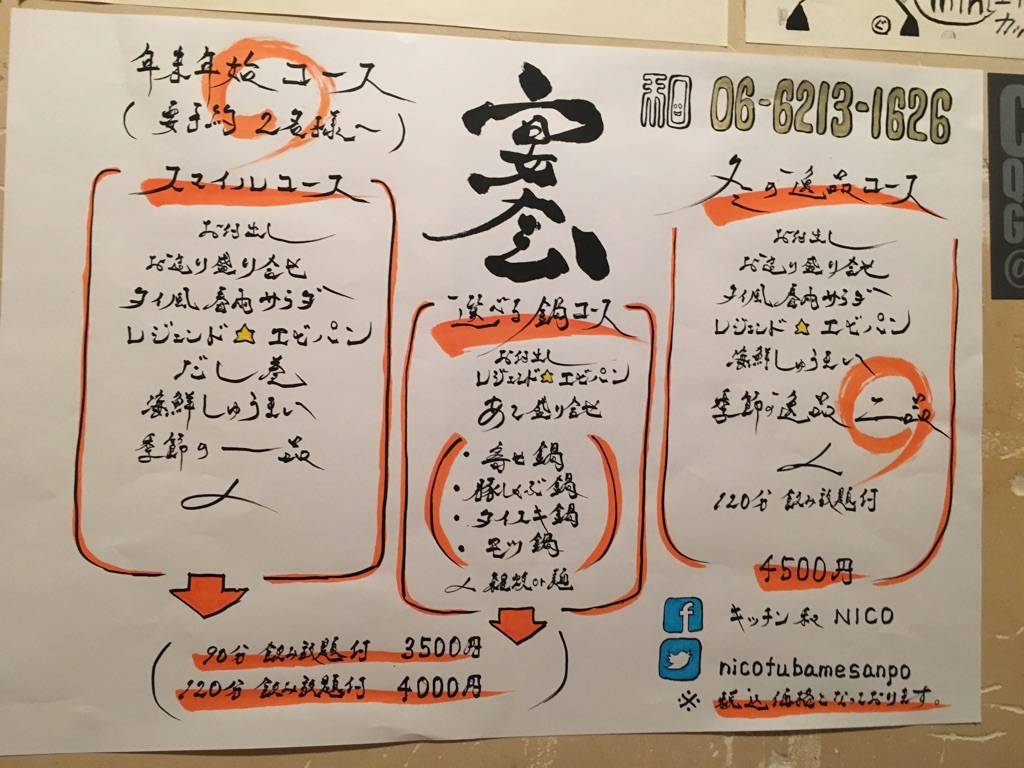 年末年始コース
(要予約 2名様〜)
宴会
和 06-6213-1626
スマイルコース
お付出し
お造り盛り合せ
タイ風春雨サラダ
レジェンド★エビパン
だし巻
海鮮しゅうまい
季節の一品
〆
選べる鍋コース
お付出し
レジェンド★エビパン
あて盛り合せ
・寄せ鍋
・豚しゃぶ鍋
・タイスキ鍋
・モツ鍋
〆 雑炊or麺
90分 飲み放題付 3500円
120分 飲み放題付 4000円
冬の逸品コース
お付出し
お造り盛り合せ
タイ風春雨サラダ
レジェンド★エビパン
海鮮しゅうまい
季節の逸品 二品
〆
120分 飲み放題付
4500円
キッチン和 NICO
nicotubamesanpo
※ 税込価格となっております。